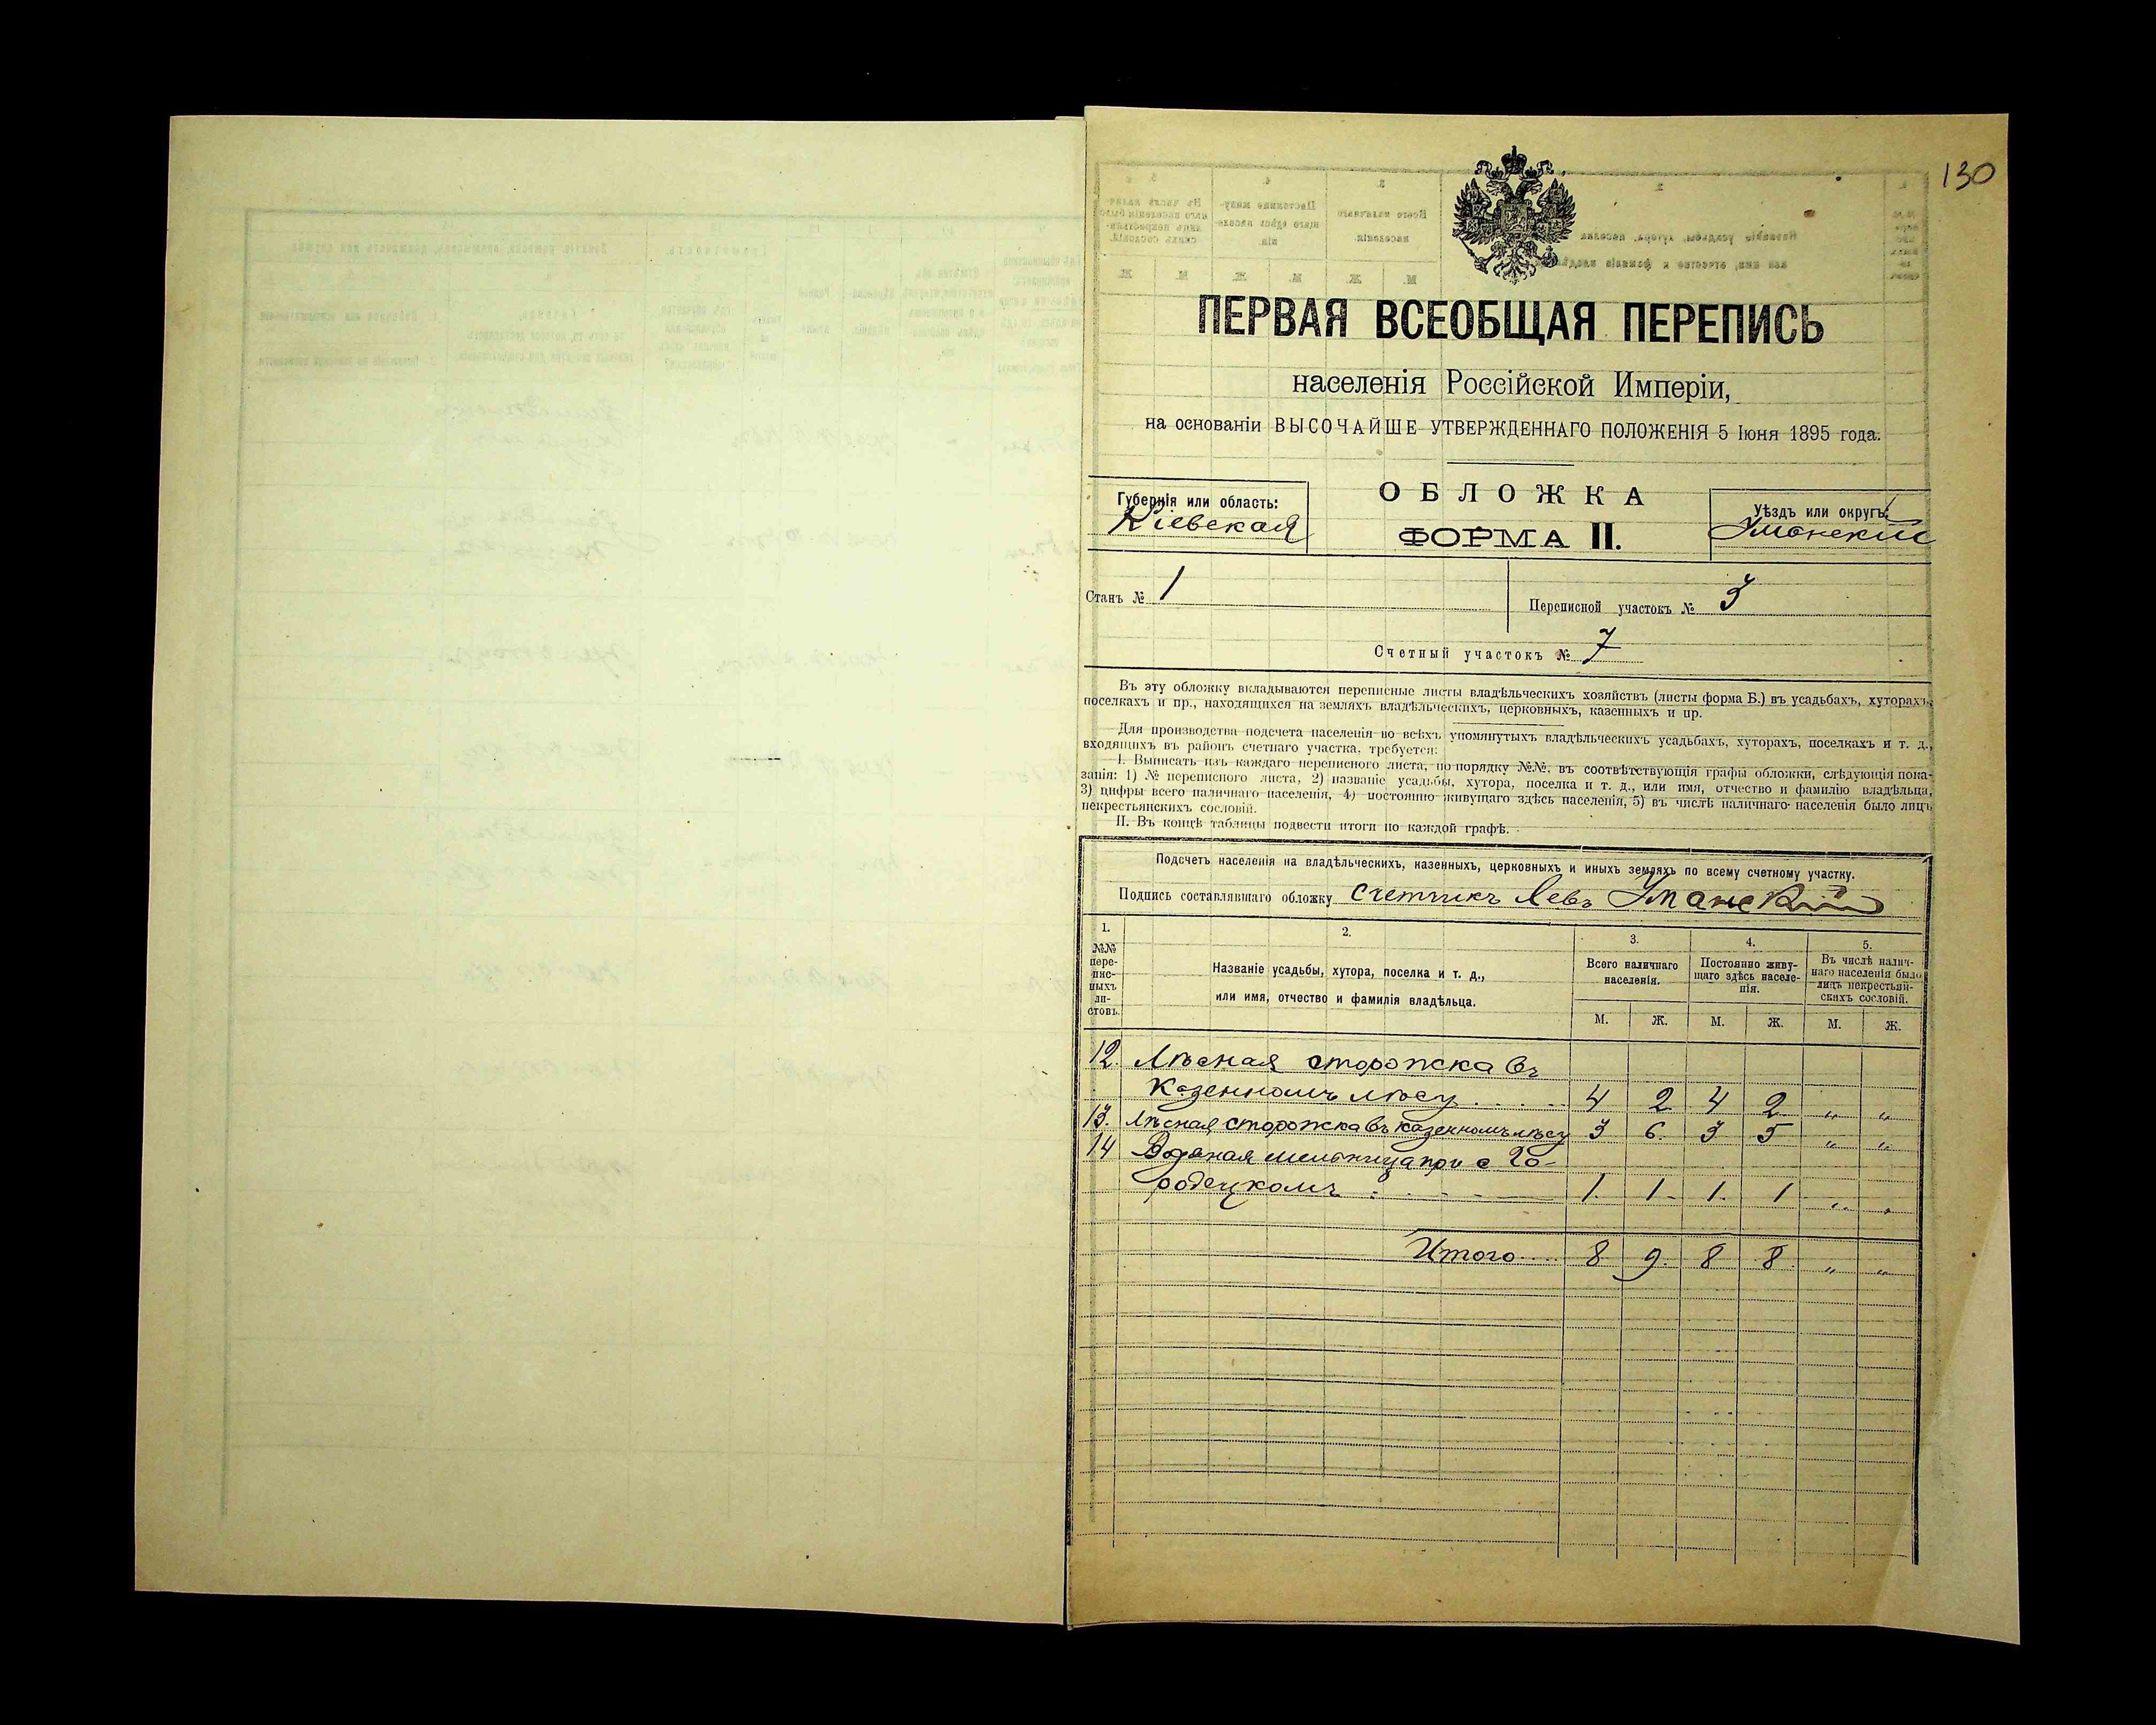 130
ПЕРВАЯ ВСЕОБЩАЯ ПЕРЕПИСЬ
населенія Россійской Имперіи,
на основаніи ВЫСОЧАЙШЕ УТВЕРЖДЕННАГО ПОЛОЖЕНІЯ 5 Іюня 1895 года.
Губернія или область:
Кіевская
ОБЛОЖКА
ФОРМА II.
Уѣздъ или округъ:
Уманскій
Станъ № 1
Переписной участокъ № 3
Счетный участокъ № 7
Въ эту обложку вкладываются переписные листы владѣльческихъ хозяйствъ (листы форма Б.) въ усадьбахъ, хуторахъ,
поселкахъ и пр., находящихся на земляхъ владѣльческихъ, церковныхъ, казенныхъ и пр.
Для производства подсчета населенія во всѣхъ упомянутыхъ владѣльческихъ усадьбахъ, хуторахъ, поселкахъ и т. д.,
входящихъ въ районъ счетнаго участка, требуется:
I. Выписать изъ каждаго переписного листа, по порядку №№, въ соотвѣтствующія графы обложки, слѣдующія пока-
занія: 1) № переписного листа, 2) названіе усадьбы, хутора, поселка и т. д., или имя, отчество и фамилію владѣльца,
3) цифры всего наличнаго населенія, 4) постоянно живущаго здѣсь населенія, 5) въ числѣ наличнаго населенія было лицъ
некрестьянскихъ сословій.
II. Въ концѣ таблицы подвести итоги по каждой графѣ.
Подсчетъ населенія на владѣльческихъ, казенныхъ, церковныхъ и иныхъ земляхъ по всему счетному участку.
Подпись составлявшаго обложку Счетчикъ Левъ Уманскій
1.
№№ пере-
пис-
ныхъ
ли-
стовъ.
2.
Названіе усадьбы, хутора, поселка и т. д.,
или имя, отчество и фамилія владѣльца.
3.
Всего наличнаго
населенія.
М. Ж.
4.
Постоянно живу-
щаго здѣсь населе-
нія.
М. Ж.
5.
Въ числѣ налич-
наго населенія было
лицъ некрестьян-
скихъ сословій.
М. Ж.
12. Лѣсная сторожка въ
Казенномъ лѣсу . . . . . 4 2 4 2 „ „
13. Лѣсная сторожка въ казенномъ лѣсу 3 6. 3 5 „ „
14 Водяная мельница при с Го-
родецкомъ . . . . 1. 1. 1. 1 „ „
Итого . . . 8 9. 8 8. „ „